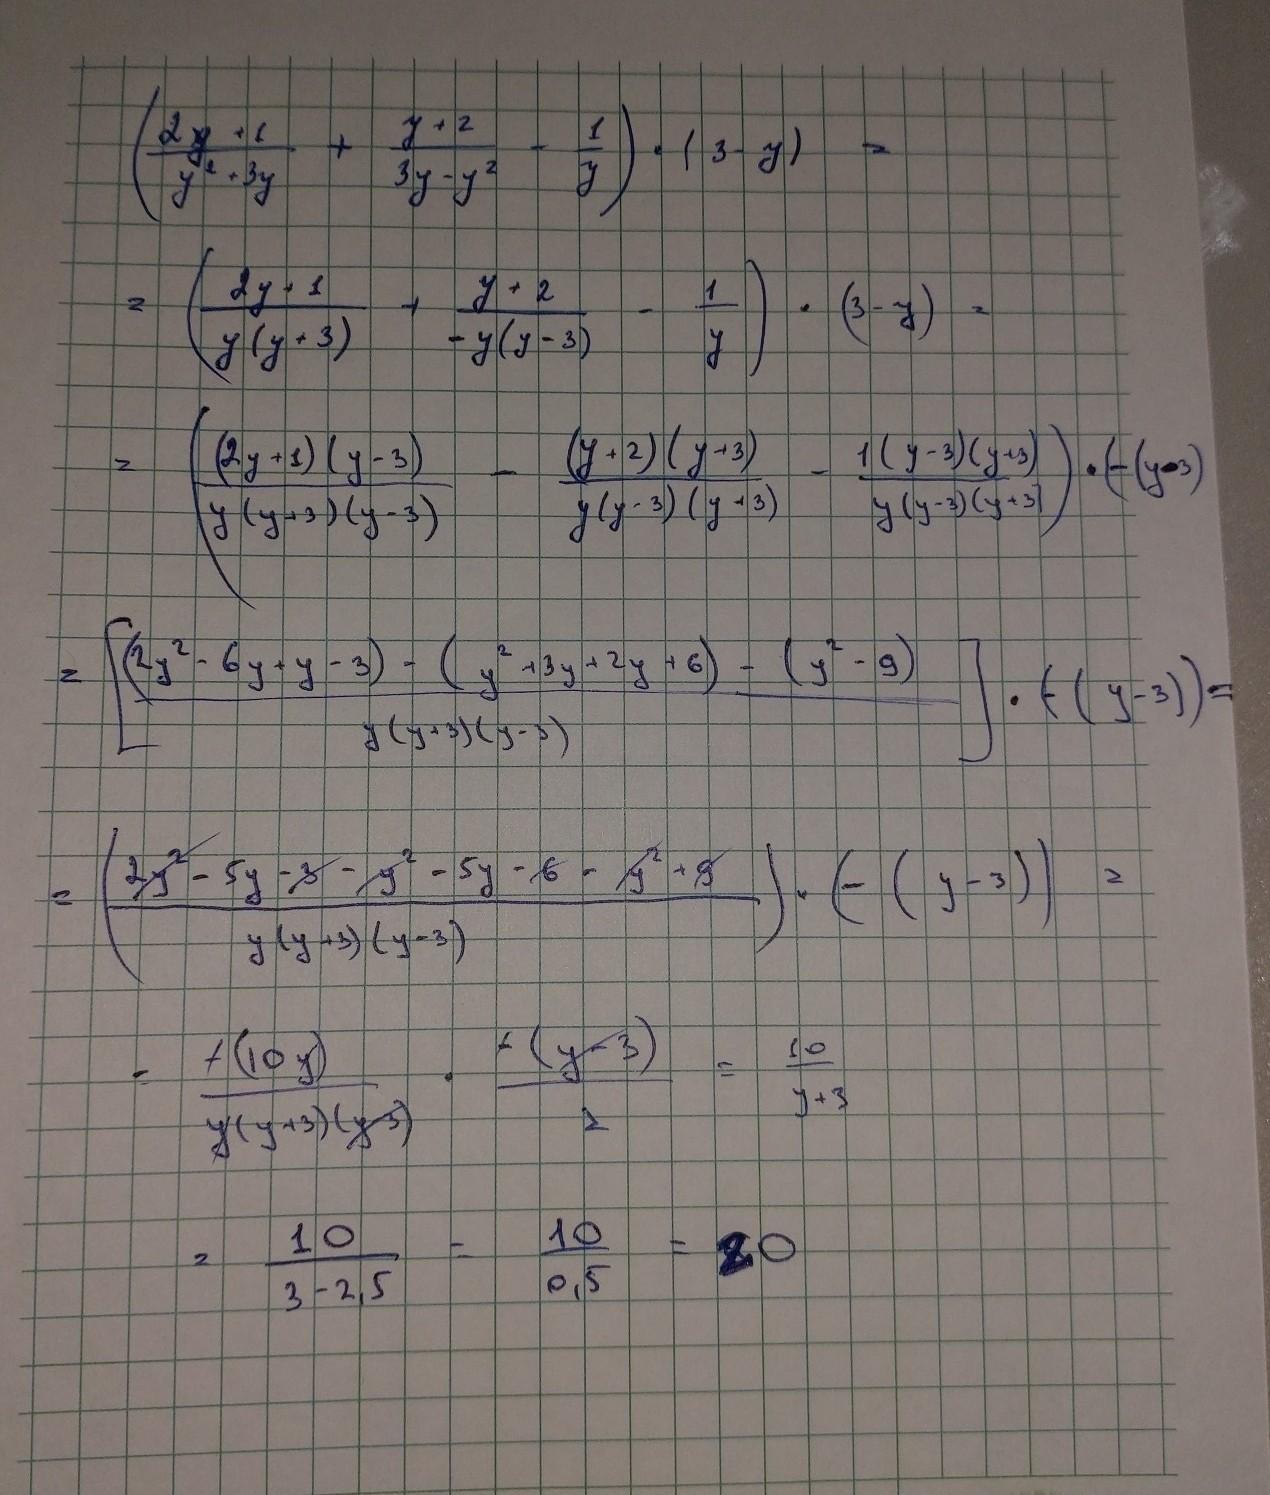 (2y+1/y²+3y + y+2/3y-y² - 1/y) · (3-y) =
= (2y+1/y(y+3) + y+2/-y(y-3) - 1/y) · (3-y) =
= ((2y+1)(y-3)/y(y+3)(y-3) - (y+2)(y+3)/y(y-3)(y+3) - 1(y-3)(y+3)/y(y-3)(y+3)) · (-(y-3)
= [(2y²-6y+y-3)-(y²+3y+2y+6)-(y²-9)/y(y+3)(y-3)] · (-(y-3))=
= (2y²-5y-3-y²-5y-6-y²+9/y(y+3)(y-3)) · (-(y-3)) =
= -(10y)/y(y+3)(y-3) · -(y-3)/1 = 10/y+3
= 10/3-2,5 = 10/0,5 = 20